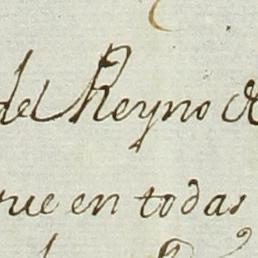 del Reyno
en todas